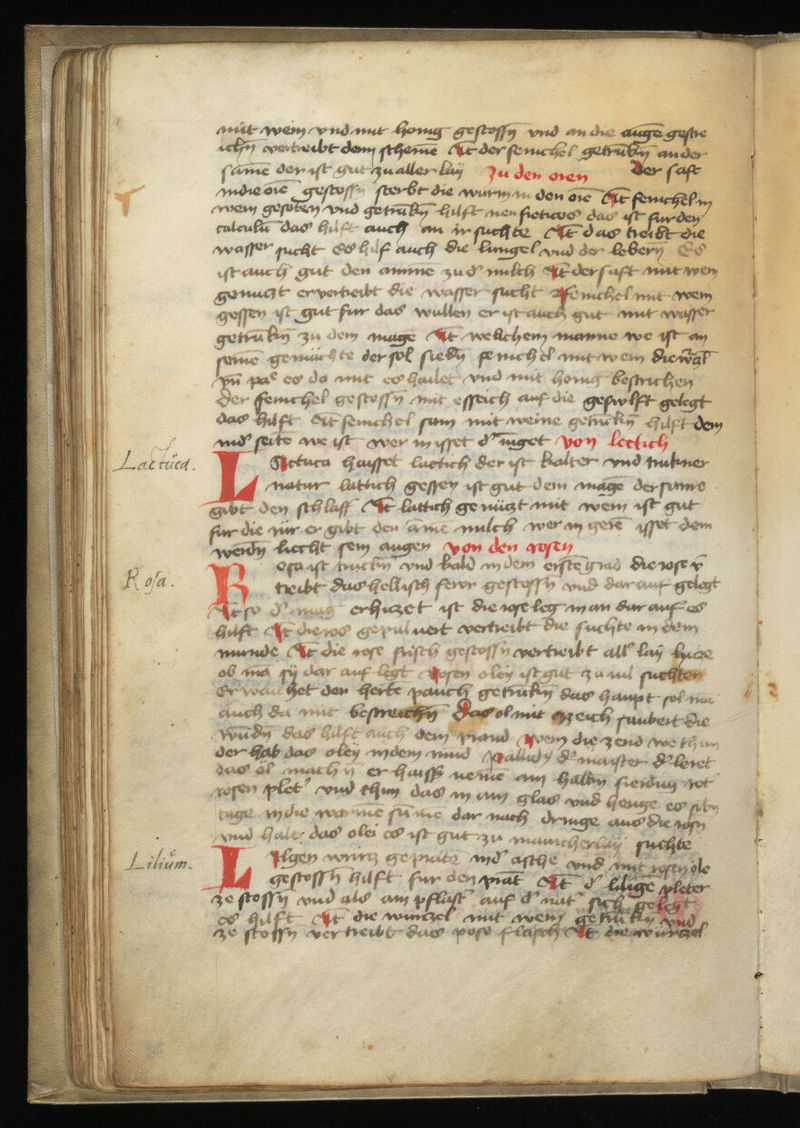 mit wein vnd mit honig gestossn̄ vnd an die augē gestrē
ichn̄ vertreibt dem schemē It der fenichel getrūkn̄ an der
samē der ist gut zu aller lay zu den oren der saft
in die orē gestossn̄ sterbt die wurm in den orē It fenichel in
wein gesoten vnd getrūkn̄ hilft das ist fur den
calculū das hilft auch an ir suchte It das treibt die
wasser sucht Es hilf auch die lungel vnd der lebern Es
ist auch gut den ammē zu d milch It der saft mit wein
genutzt er vertreibt die wasser sucht fenichel mit wein
gessen ist gut fur das wullen er ist auch gut mit wasser
getrūkn̄ zu dem mage It welichem manne we ist an
seinē gemächte der sol siedn̄ fenichel mit wein
es da mit es hailet vnd mit honig bestrichen
Der fenichel gestossn̄ mit esseich auf die geswlft gelegt
das hilft It fenichel sam mit weine getrūkn̄ hilft dem
seite we ist wer in isset von lectich
Lactuca.
Lactuca haisset lactich der ist kalter vnd trukner
natur lattich gessen ist gut dem magē der same
gibt den schlaff It lattich genüczt mit wein ist gut
fur die rür er gibt den āme milch wer in gerē isset dem
werdn̄ liecht sein augen von den rosen
Rosa.
Rosa ist truckn̄ vnd kald in dem erstē grad die rose v̄
treibt das hellisch fewr gestossn̄ vnd dar auf gelegt
It so d mag erhiczet ist die rose leg man dar auf es
hilft It die ros gepuluert vertreibt die suchte in dem
munde It die rose frisch gestossn̄ vertreibt all lay hicze
ob mā sy dar auf legt Rosen oley ist gut zu uil suchten
Er waichet den herte pauch getrūkn̄ das haupt sol mā
auch da mit bestreichn̄ Das ol mit ezeich saubert die
wūdn̄ das hilft auch dem prand wem die zend we thun
der hab das oley in dem mud Palladiꝯ d maister d leret
das ol machn̄ er haisst neme ain halbn̄ rot
rosen plet vnd thun das in ain glas vnd henge es sibn̄
tage in die warme sūne dar nach dringe aus die rosn̄
vnd halt das olei es ist gut zu maincherlay suchte
Lilium.
Lilgen wurcz geprate in d asche vnd mit rosen ole
gestossn̄ hilft fur den prāt It d lilige pleter
ze stossn̄ vnd als ain pflast auf d nat sich gelegt
es hilft It die wurczel mit wein getrūkn̄ vnd
ze stossn̄ vertreibt das pose flaisch It die wurczel